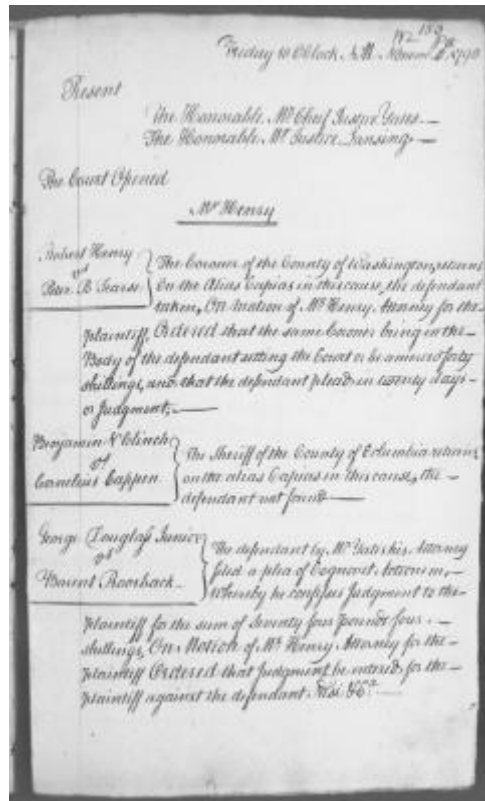 182 183
Friday 10 OClock A.M. Novem 1790
Present
The Honorable Mr Chief Justice Yates
The Honorable Mr Justice Lansing
The Court Opened
Mr Henry
Robert Henry
vs
Peter B Tearse
The Coroner of the County of Washington, returns
On the Alias Capias in this cause, the defendant
taken, On Motion of Mr Henry Attorney for the
plaintiff, Ordered that the same Coroner bring in the
Body of the defendant sitting the Court or be amerced forty
shillings, and that the defendant plead in twenty days
or Judgment,
Benjamin Y Clinch
vs
Cornelius Cappen
The Sheriff of the County of Columbia returns
on the alias Capias in this cause, the
defendant not found
George Douglass Junior
vs
Barent Roorback
The defendant by Mr Yates his Attorney
filed a plea of Cognovit Actionem,
whereby he confesses Judgment to the
plaintiff for the sum of Seventy four pounds four
shillings, On Motion of Mr Henry, Attorney for the
plaintiff Ordered that Judgment be entered for the
plaintiff against the defendant Nisi &c.